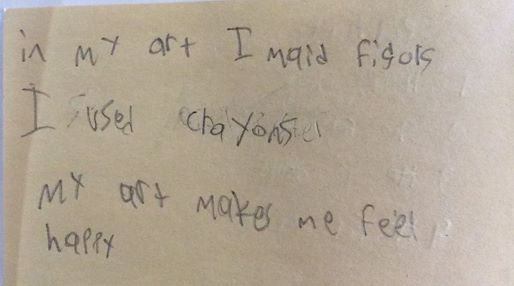 in my art I maid figors
I used crayons
My art makes me feel
happy